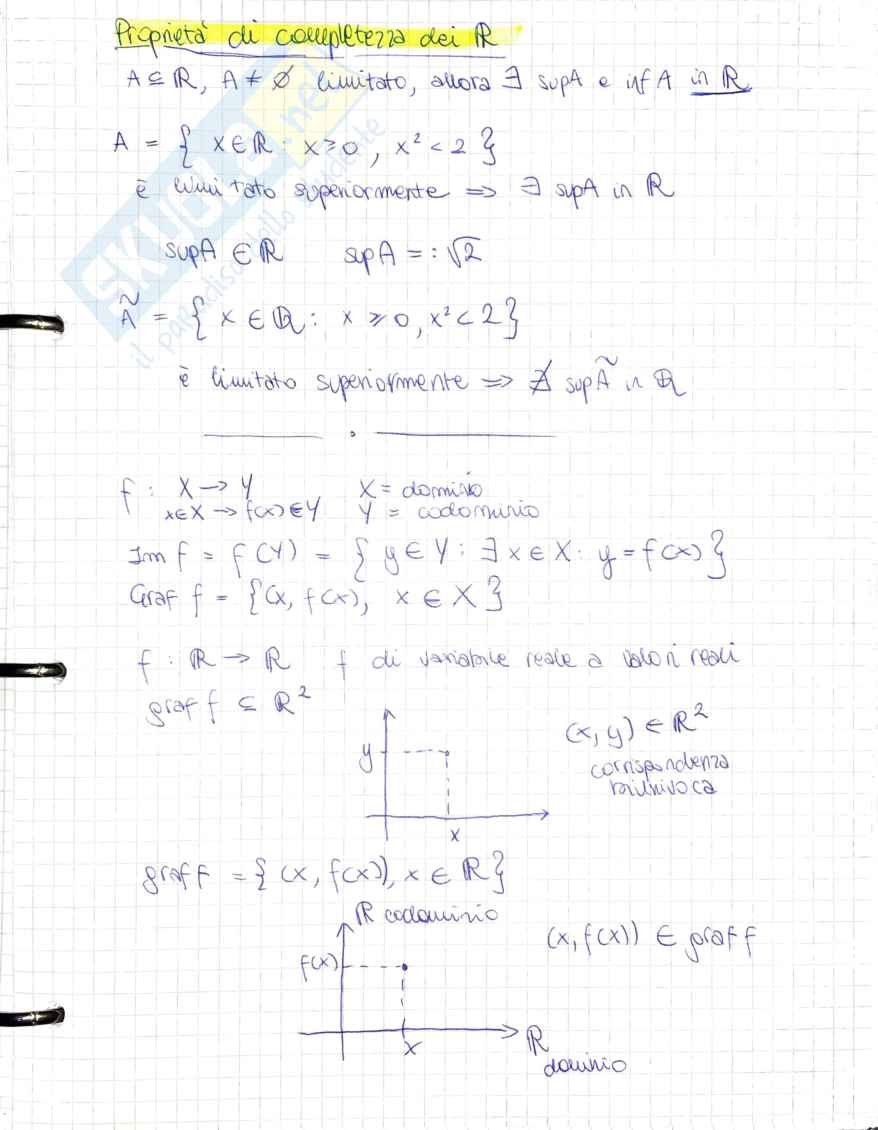 Proprietà di completezza dei ℝ
A ⊆ ℝ, A ≠ ∅ limitato, allora ∃ sup A e inf A in ℝ
A = { x ∈ ℝ : x ≥ 0 , x² < 2 }
è limitato superiormente ⇒ ∃ sup A in ℝ
sup A ∈ ℝ sup A =: √2
Ã = { x ∈ ℚ : x ≥ 0, x² < 2 }
è limitato superiormente ⇒ ∄ sup Ã in ℚ
f : X → Y X = dominio
x∈X → f(x) ∈ Y Y = codominio
Im f = f(Y) = { y ∈ Y : ∃ x ∈ X : y = f(x) }
Graf f = {(x, f(x), x ∈ X }
f : ℝ → ℝ f di variabile reale a valori reali
graf f ⊆ ℝ²
y
x
(x, y) ∈ ℝ²
corrispondenza
biunivoca
graf f = { (x, f(x)), x ∈ ℝ }
ℝ codominio
f(x)
x
ℝ
dominio
(x, f(x)) ∈ graf f
SKUOLA.net
il paradiso dello studente